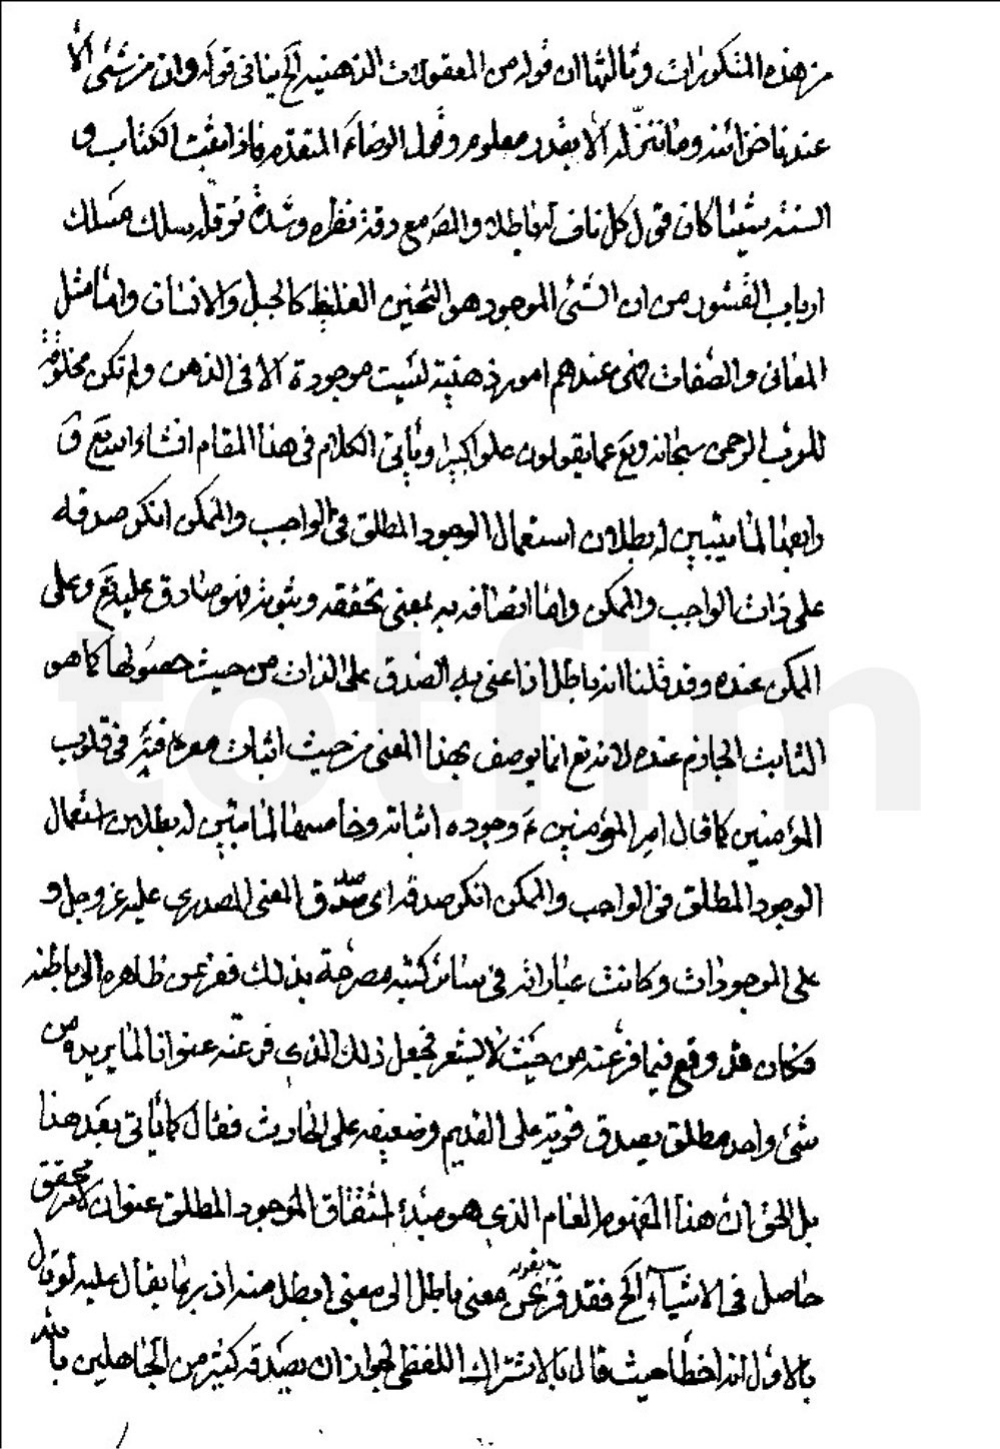 من هذه المذكورات وثالثها ان قوله من المعقولات الذهنية الخ ينافى قوله وان من شئ الا
عندنا خزائنه وما ننزله الا بقدر معلوم وقول الرضاء المتقدم فاذا اثبت الكتاب و
السنة شيئا كان قول كل ناف له باطلا والمصـ مع دقة نظره وشدة توقله سلك مسلك
ارباب القشور من ان الشئ الموجود هو الثخين الغليظ كالجبل والانسان واما مثل
المعانى والصفات فهى عندهم امور ذهنية ليست موجودة الا فى الذهن ولم تكن مخلوقة
للرب الرحمن سبحانه وتع عما يقولون علوا كبيرا ويأتى الكلام فى هذا المقام انشاء الله تع و
رابعها لما تبين له بطلان استعمال الوجود المطلق فى الواجب والممكن انكر صدقه
على ذات الواجب والممكن واما اتصافه به بمعنى تحققه وثبوته فهو صادق عليه تع وعلى
الممكن عنده وقد قلنا انه باطل اذا عنى به الصدق على الذات من حيث حصولها كما هو
الثابت الجازم عنده لانه تع انما يوصف بهذا المعنى من حيث اثبات معرفته فى قلوب
المؤمنين كما قال امير المؤمنين ع وجوده اثباته وخامسها لما تبين له بطلان استعمال
الوجود المطلق فى الواجب والممكن انكر صدقه اى صدق المعنى المصدرى عليه عز وجل و
على الموجودات وكانت عباراته فى سائر كتبه مصرحة بذلك ففر عن ظاهره الى باطنه
فكان قد وقع فيما فر عنه من حيث لا يشعر فجعل ذلك الذى فر عنه عنوانا لما يريده من
شئ واحد مطلق يصدق قويه على القديم وضعيفه على الحادث فقال كما يأتى بعد هذا
بل الحق ان هذا المفهوم العام الذى هو مبدء اشتقاق الموجود المطلق عنوان لامر محقق
حاصل فى الاشياء الخ فقد فر بقوله عن معنى باطل الى معنى ابطل منه اذ ربما يقال عليه لو قال
بالاول انه اخطأ حيث قال بالاشتراك اللفظى لجواز ان يصدقه كثير من الجاهلين بالله